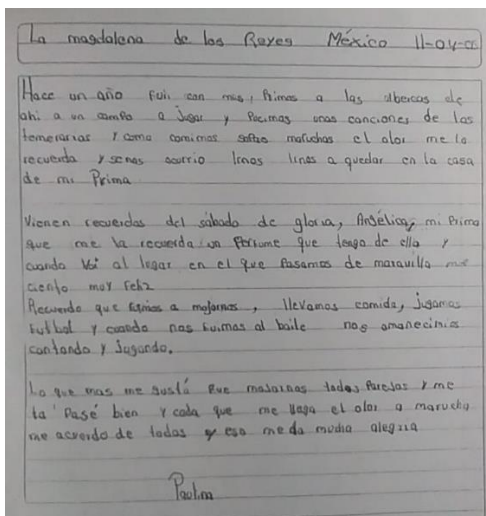 La magdalena de los Reyes México 11-04-
Hace un año Fui con mis, Primos a las albercas de
ahi a un campo a Jugar y Pucimas unas canciones de los
temerarios y como comimos sopas maruchas el olor me lo
recuerda y senos ocurrio Irnos a quedar en la casa
de mi Prima
Vienen recuerdos del sábado de gloria, Angélica, mi Prima
que me la recuerda un Perfume que tengo de ella y
cuando Voi al lugar en el que Pasamos de maravilla me
ciento muy Feliz
Recuerdo que fuimos a mojarnos, llevamos comida, jugamos
futbol y cuando nos fuimos al baile nos amanecimos
cantando y Jugando.
Lo que mas me gustó Fue mojarnos todos Parejos y me
la Pasé bien y cada que me llega el olor a marucha
me acuerdo de todos y eso me da mucha alegria
Paulina